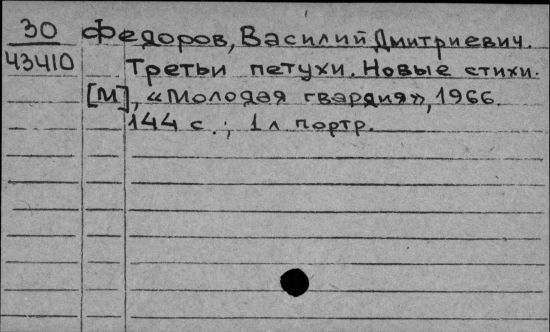 30 Федоров, Василий Дмитриевич.
43410 Третьи петухи. Новые стихи.
[М], «Молодая гвардия», 1966.
144 с.; 1 л. портр.